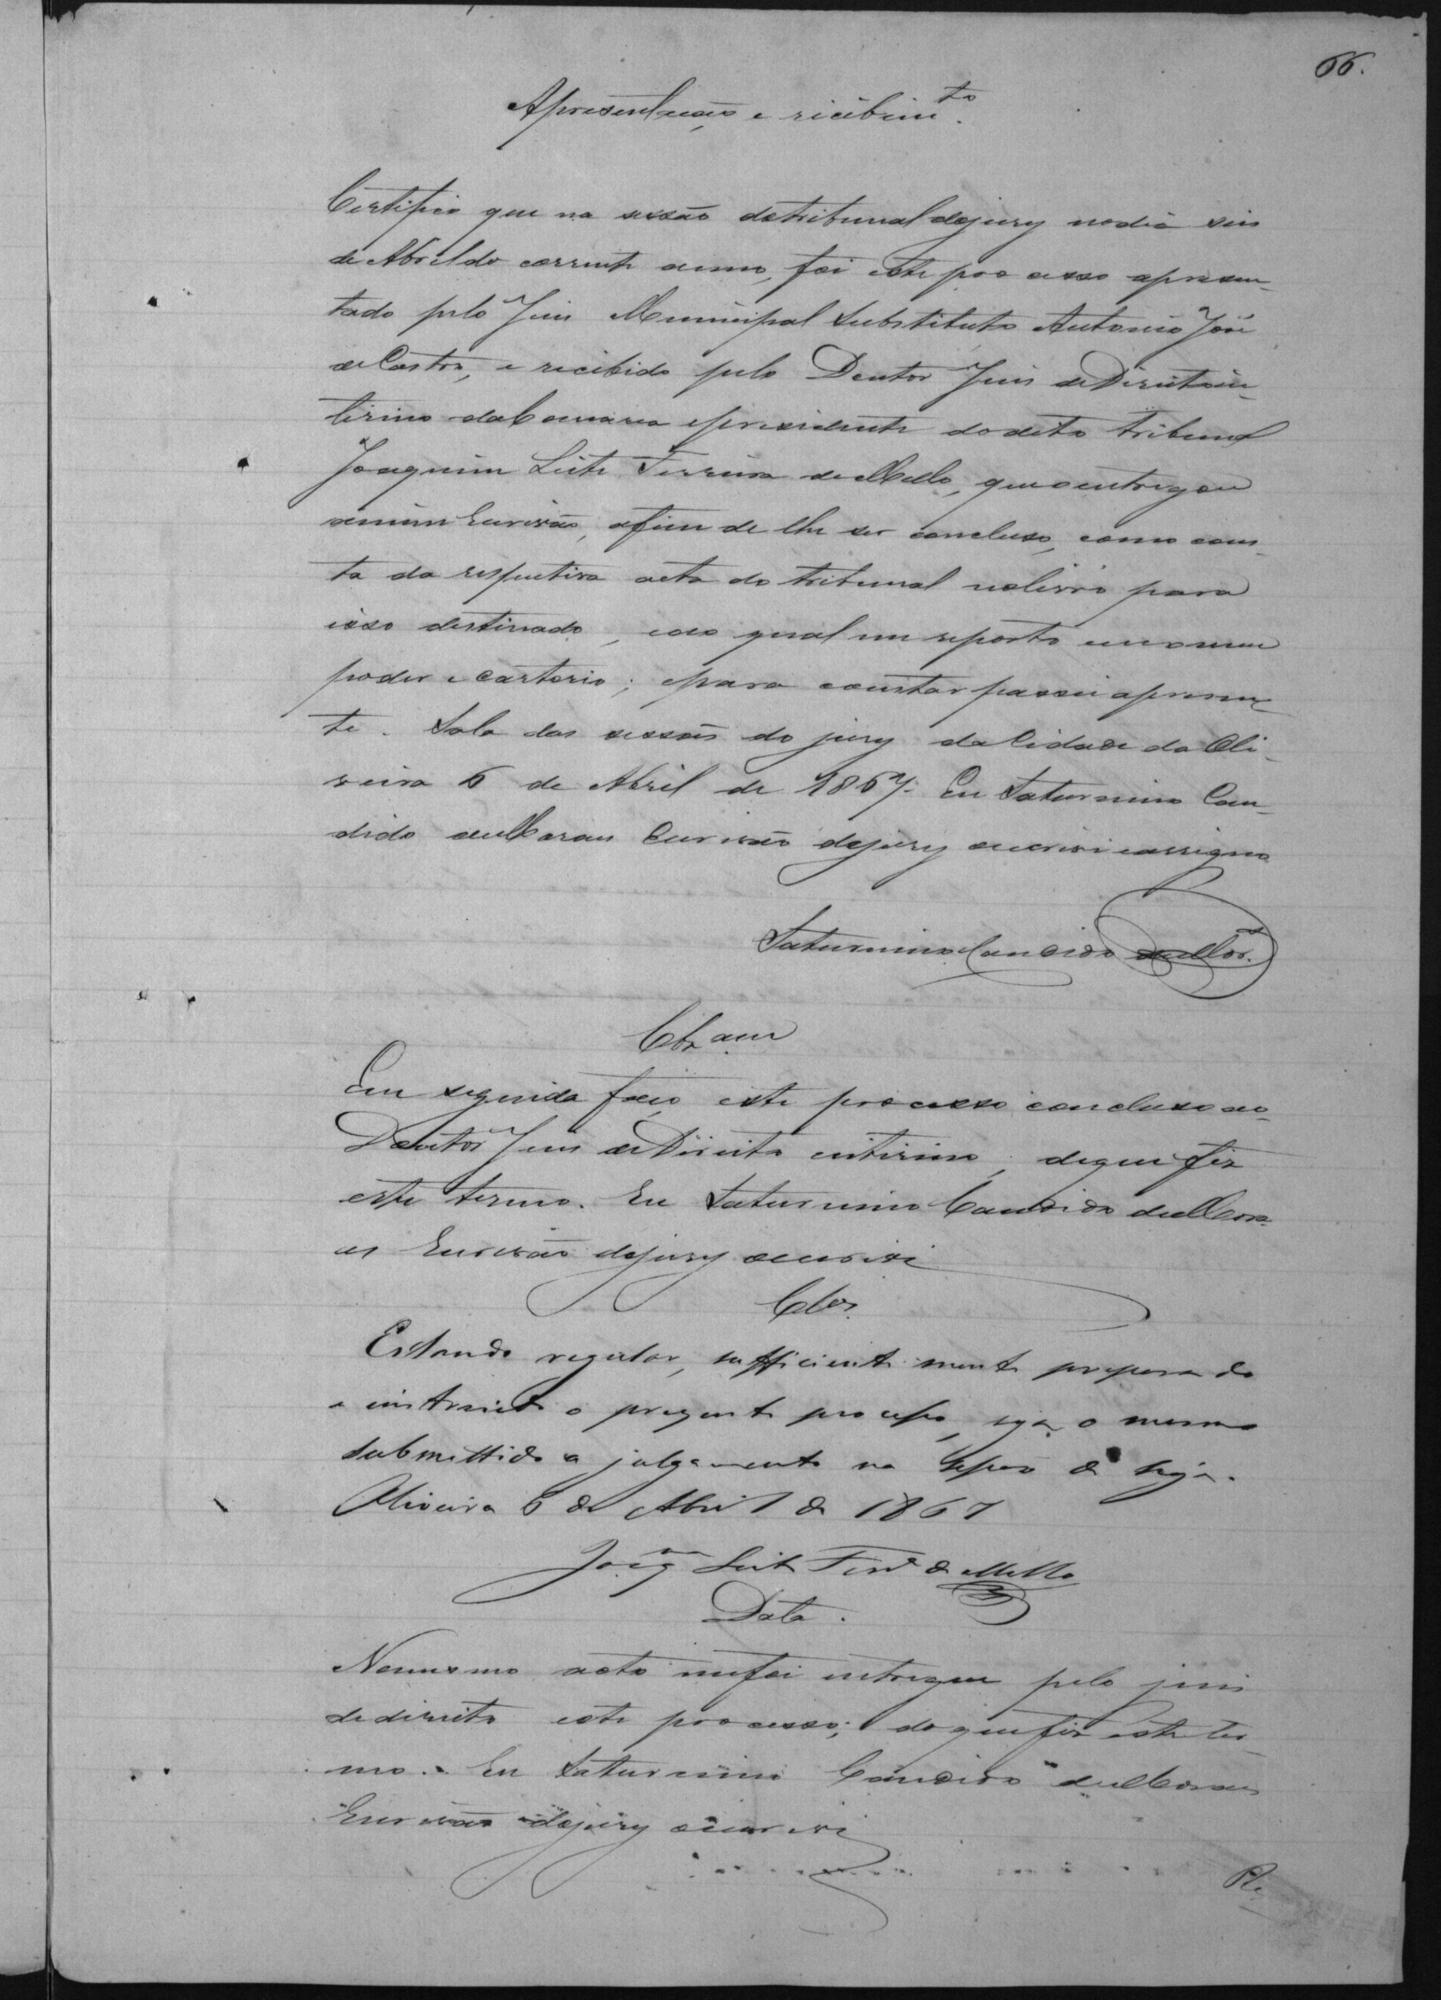 66.
Apresentação e recebim.to
Certifico que na sessão do tribunal do jury no dia seis
de Abril do corrente anno, foi este processo apresen-
tado pelo Juis Municipal Substituto Antonio José
de Castro, e recebido pelo Doutor Juis de Direito in-
terino da Comarca e presidente do dito tribunal
Joaquim Leite Ferreira de Mello, que o entregou
a mim Escrivão, afim de lhe ser concluso, como cons-
ta da respectiva acta do tribunal no livro para
isso destinado, e ao qual me reporto em o meu
poder e cartorio; e para constar passei a presen-
te. Sala das sessões do jury da Cidade da Oli-
veira 6 de Abril de 1867. Eu Saturnino Can-
dido de Moraes Escrivão do jury escrevi e assigno
Saturnino Candido de Mor.
Clz.am
Em seguida faço este processo concluso ao
Doutor Juis de Direito interino, de que fiz
este termo. Eu Saturnino Candido de Mora-
es Escrivão do jury escrevi
Clos.
Estando regular, sufficientemente preparado
e instruido o prezente processo, seja o mesmo
submettido a julgamento na sessão de hoje.
Oliveira 6 de Abril de 1867
Joaq.m Leite Ferr.a de Mello
Data.
No mesmo acto me foi entregue pelo juis
de direito este processo; do que fiz este ter-
mo. Eu Saturnino Candido de Moraes
Escrivão do jury escrevi